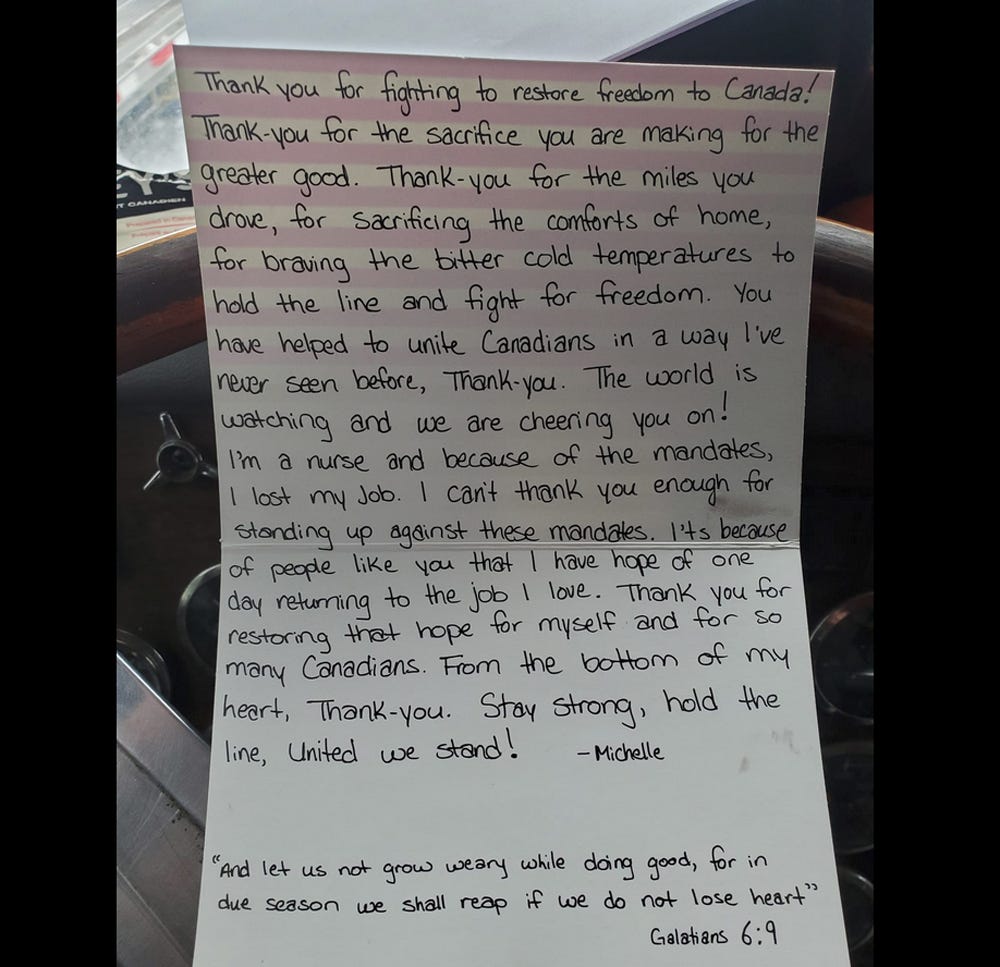 Thank you for fighting to restore freedom to Canada!
Thank-you for the sacrifice you are making for the
greater good. Thank-you for the miles you
drove, for sacrificing the comforts of home,
for braving the bitter cold temperatures to
hold the line and fight for freedom. You
have helped to unite Canadians in a way I've
never seen before, Thank-you. The world is
watching and we are cheering you on!
I'm a nurse and because of the mandates,
I lost my Job. I can't thank you enough for
standing up against these mandates. I'ts because
of people like you that I have hope of one
day returning to the job I love. Thank you for
restoring that hope for myself and for so
many Canadians. From the bottom of my
heart, Thank-you. Stay strong, hold the
line, United we stand! - Michelle
"And let us not grow weary while doing good, for in
due season we shall reap if we do not lose heart"
Galatians 6:9